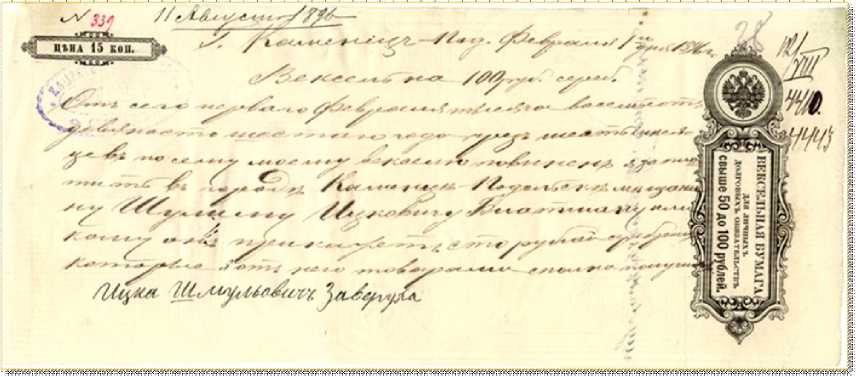 N 339
11 Августа 1896
ЦѢНА 15 КОП.
Г. Каменецъ-Под. Февраля 1 дня 1896 г.
Вексель на 100 руб. сереб.
Отъ сего перваго Февраля тысяча восемьсотъ
девяносто шестаго года чрезъ шесть мѣся-
цевъ по сему моему векселю повиненъ я запла-
тить въ городѣ Каменецъ Подольскѣ мѣщани-
ну Шулиму Ицковичу или
кому онъ прикажетъ сто рублей серебромъ
которые я отъ него товарами сполна получилъ
Ицка Шмульовичъ Заверуха
28
121/VIII
4443
ВЕКСЕЛЬНАЯ БУМАГА
для личныхъ
долговыхъ обязательствъ
свыше 50 до 100 рублей.